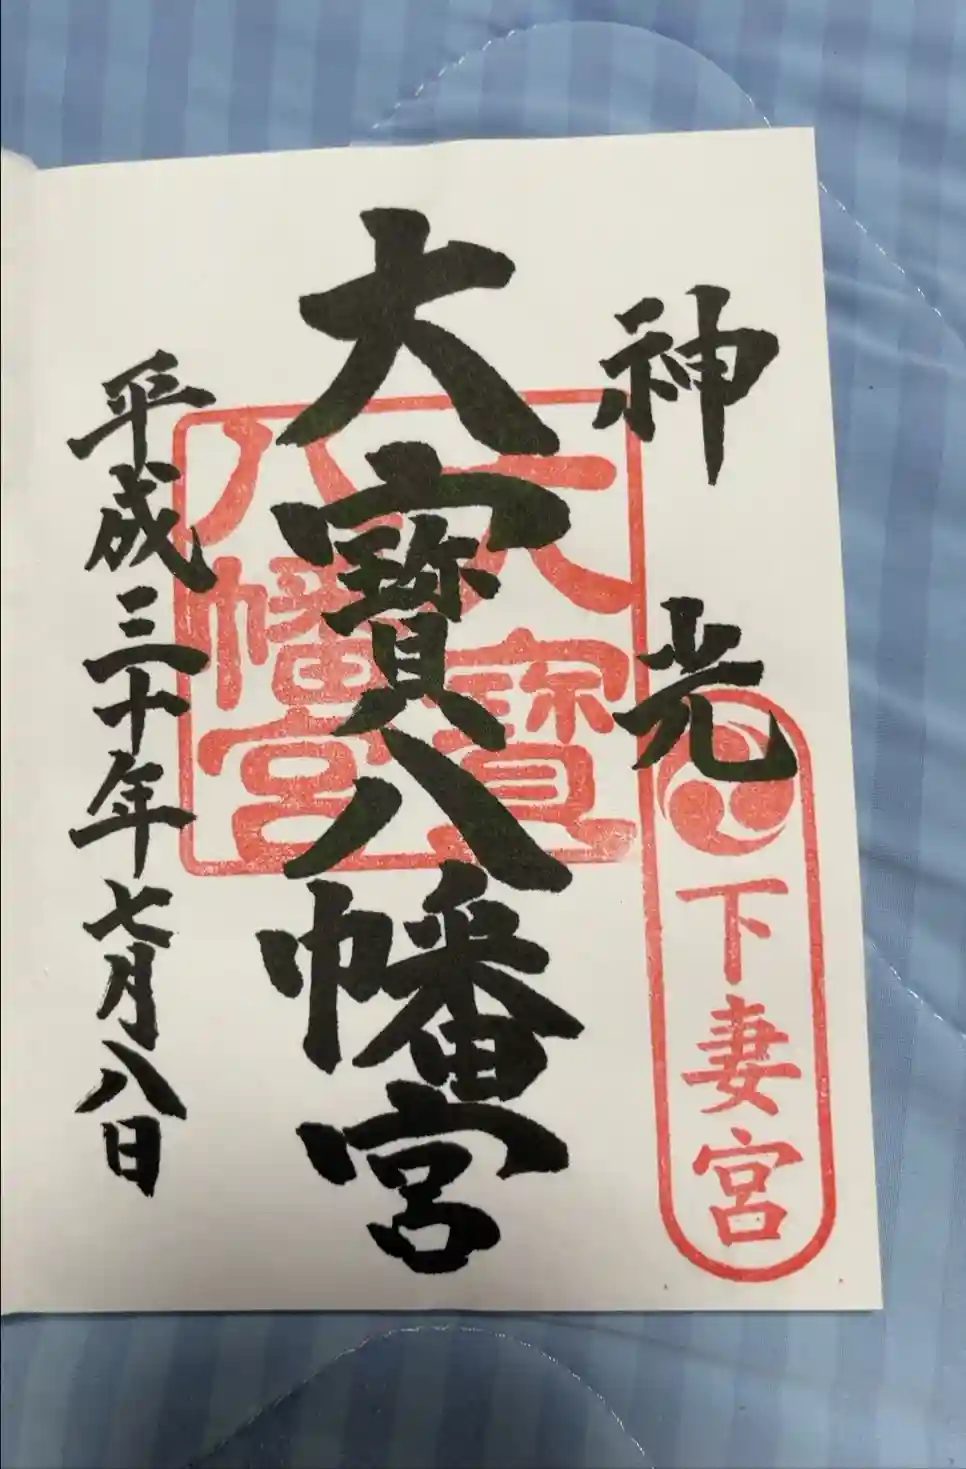 神光
下妻宮
大寳八幡宮
大寳
八幡宮
平成三十年七月八日